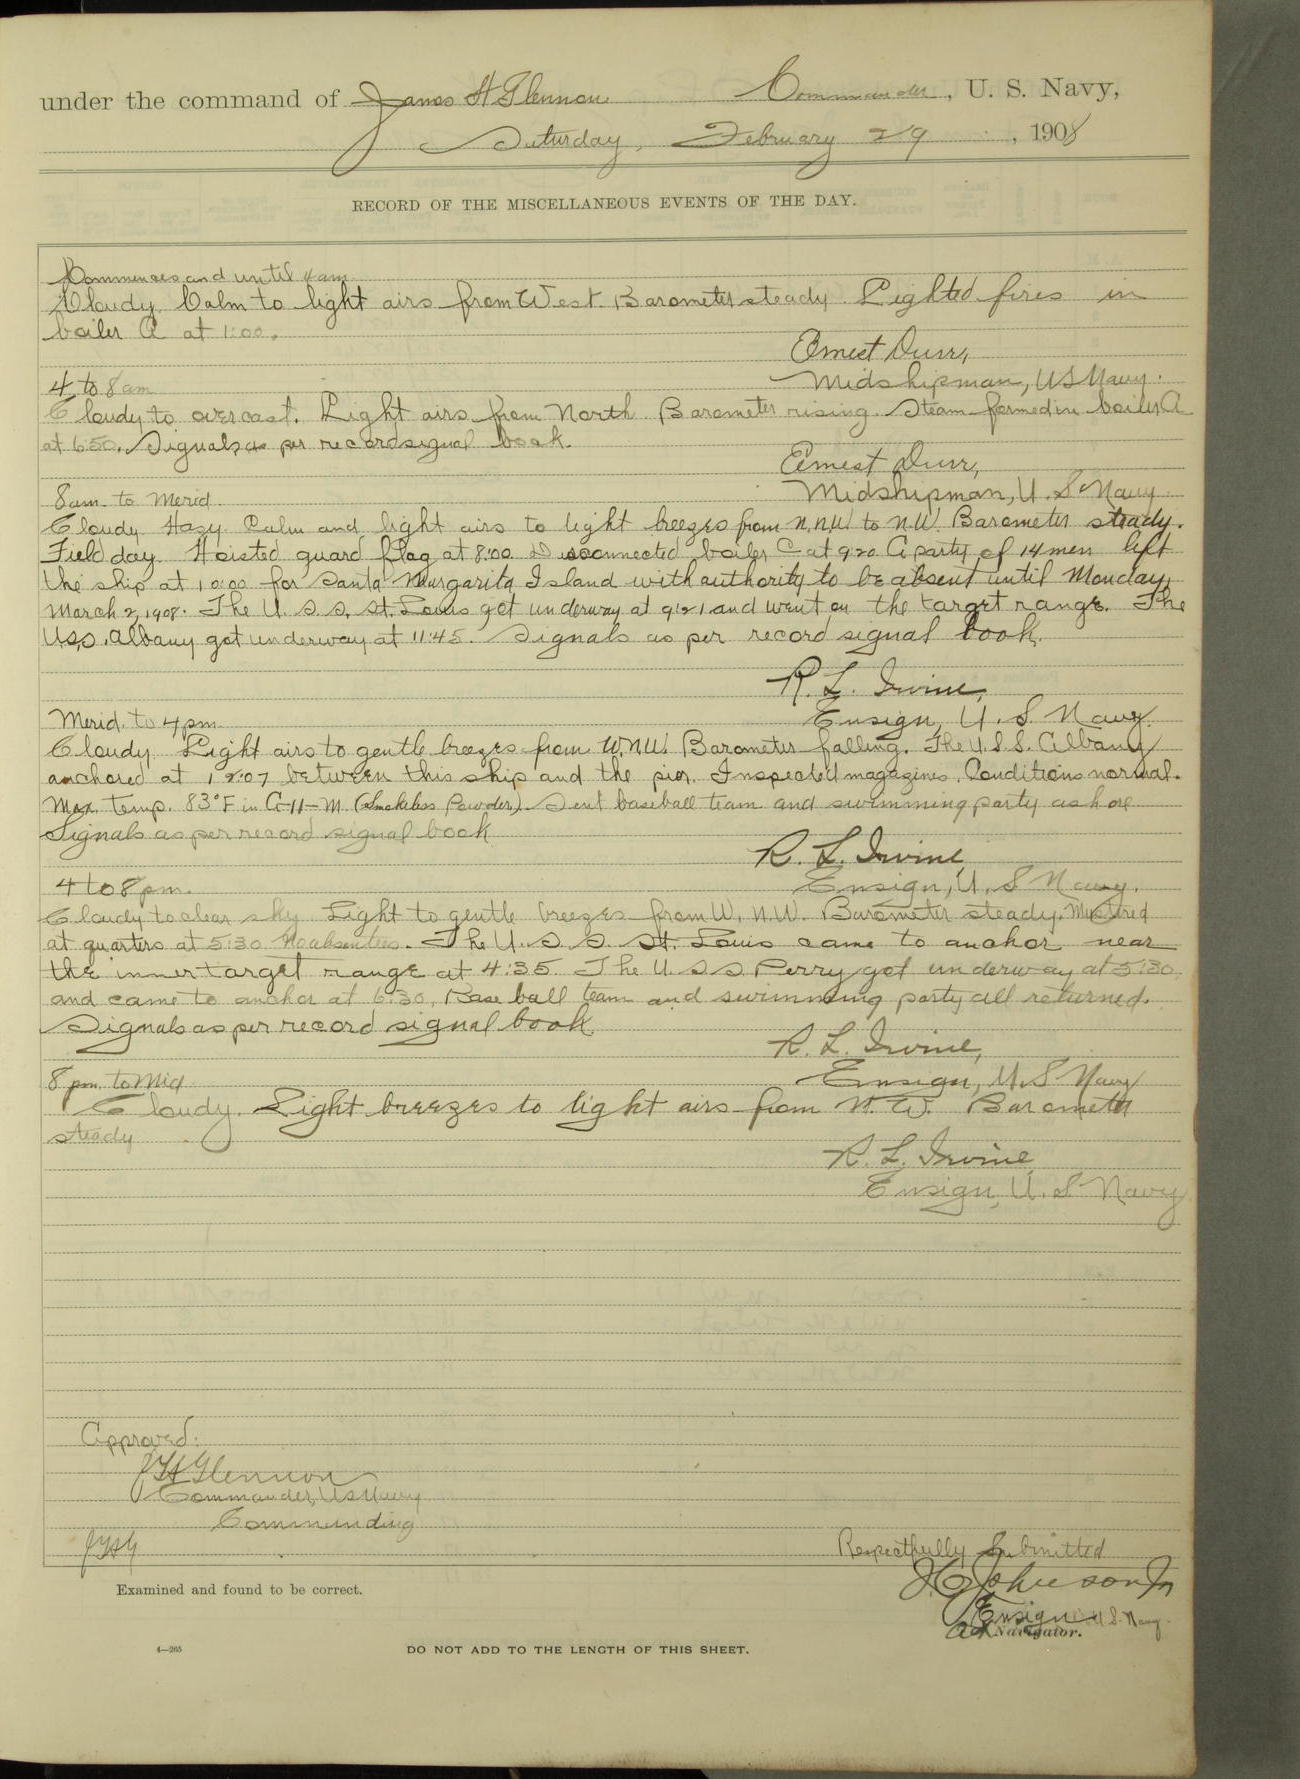 under the command of James H Glennon Commander, U. S. Navy,
Saturday, February 29, 1908
RECORD OF THE MISCELLANEOUS EVENTS OF THE DAY.
Commences and until 4 am
Cloudy. Calm to light airs from West. Barometer steady. Lighted fires in
boiler A at 1:00.
Ernest Durr,
Midshipman, U S Navy.
4 to 8 am
Cloudy to overcast. Light airs from North. Barometer rising. Steam formed in boiler A
at 6:50. Signals as per record signal book.
Ernest Durr,
Midshipman, U. S Navy
8 am. to Merid.
Cloudy Hazy. Calm and light airs to light breezes from N.N.W to N.W. Barometer steady.
Field day. Hoisted guard flag at 8:00. Disconnected boiler C at 9:20. A party of 14 men left
the ship at 10:00 for Santa Margarita Island with authority to be absent until Monday,
March 2, 1908. The U. S. S. St. Louis got underway at 9:21 and went on the target range. The
U.S.S. Albany got underway at 11:45. Signals as per record signal book.
R. L. Irvine,
Ensign, U. S. Navy.
Merid. to 4 pm.
Cloudy. Light airs to gentle breezes from W.N.W. Barometer falling. The U. S. S. Albany
anchored at 12:07 between this ship and the pier. Inspected magazines. Conditions normal.
Max. temp. 83°F in A-11-M. (Smokeless Powder). Sent baseball team and swimming party ashore
Signals as per record signal book
R. L. Irvine,
Ensign, U. S Navy.
4 to 8 pm.
Cloudy to clear sky. Light to gentle breezes from W. N.W. Barometer steady. Mustered
at quarters at 5:30 no absentees. The U. S. S. St. Louis came to anchor near
the inner target range at 4:35. The U. S S Perry got underway at 5:30,
and came to anchor at 6:30. Base ball team and swimming party all returned.
Signals as per record signal book
R. L. Irvine,
Ensign, U. S Navy
8 pm. to Mid
Cloudy. Light breezes to light airs from N. W. Barometer
steady
R. L. Irvine,
Ensign, U. S Navy
Approved:
J H Glennon
Commander, U S Navy
Commanding
JHG
Respectfully Submitted
Johnson Jr
Examined and found to be correct.
Ensign U. S. Navy.
Navigator.
4—265
DO NOT ADD TO THE LENGTH OF THIS SHEET.